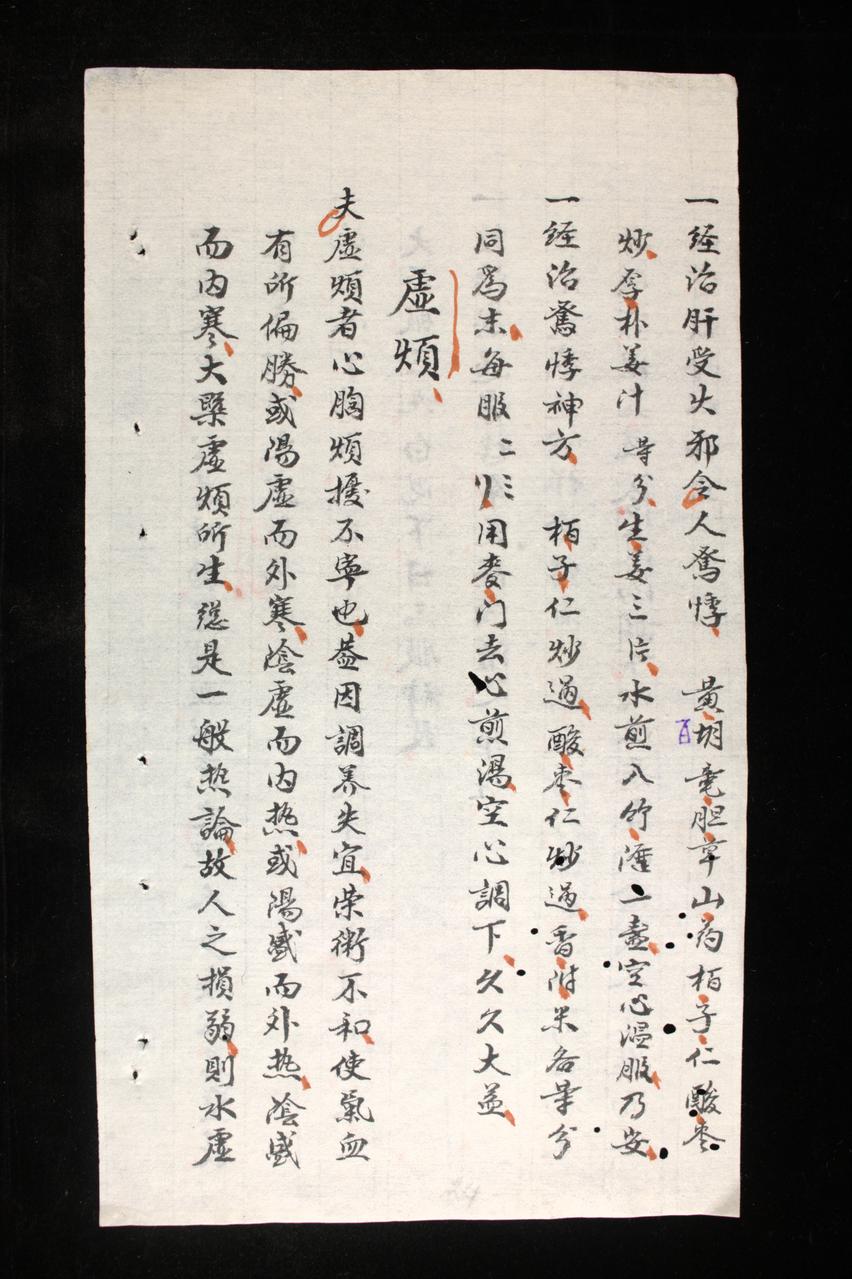 一経治肝受火邪令人驚悸 黄胡竜胆草山药栢子仁酸枣
炒厚朴姜汁 等分生姜三片水煎入竹瀝一盞空心温服乃安
一経治驚悸神方 栢子仁炒過酸枣仁炒過香附米各等分
同爲末每服二 用麥门去心煎湯空心調下久久大益
虛煩
夫虛煩者心胸煩擾不寧也盖因調养失宜荣衛不和使氣血
有所偏勝或陽虛而外寒陰虛而内热或陽盛而外热陰盛
而内寒大槩虛煩所生総是一般热論故人之損弱則水虛